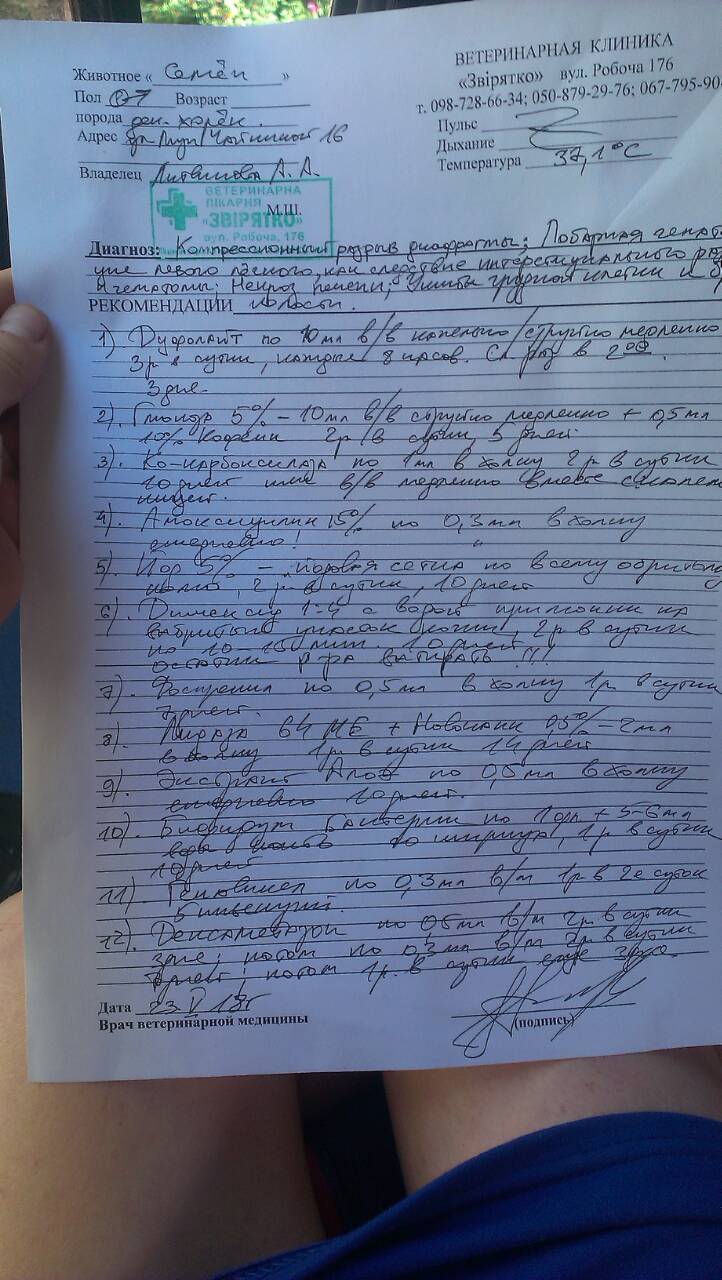 ВЕТЕРИНАРНАЯ КЛИНИКА
«Звірятко» вул. Робоча 176
т. 098-728-66-34; 050-879-29-76; 067-795-90
Животное « Семён »
Пол Возраст
порода
Адрес 16
Владелец Литвинова А. А.
Пульс
Дыхание
Температура 37,1°С
ВЕТЕРИНАРНА
ЛІКАРНЯ
«ЗВІРЯТКО»
вул. Робоча, 176
М.Ш.
Диагноз: Компрессионный разрыв диафрагмы; Лобарная
левого лёгкого, как следствие
и гематомы; Некроз печени; Ушибы грудной клетки и
РЕКОМЕНДАЦИИ полости.
1) Дуфалайт по 10мл в/в капельно/струйно медленно
3р в сутки, каждые 8 часов. Сл. раз в 2
3 дня.
2). 5% – 10мл в/в струйно медленно + 0,5мл
10% Кофеин 2р/в сутки, 5 дней
3). Ко-карбоксилаза по 1мл в холку 2р в сутки
10 дней или в/в медленно вместе
4). Амоксициллин 15% по 0,3мл в холку
ежедневно!
5). Йод 5% – йодовая сетка по всему
2р в сутки, 10 дней
6). Димексид 1:4 с водой примочки на
выбритый участок кожи, 2р в сутки
по 10-15 мин. 10 дней
остатки р-ра втирать!!!
7). по 0,5мл в холку 1р в сутки
7 дней.
8). Лидаза 64 МЕ + Новокаин 0,5% – 2мл
в холку 1р в сутки 14 дней
9). Экстракт Алоэ по 0,5мл в холку
ежедневно 10 дней.
10). по 1 + 5-6мл
воды шприца, 1р в сутки
10 дней
11). по 0,3мл в/м 1р в 2е суток
5 инъекций.
12). Дексаметазон по 0,5мл в/м 2р в сутки
3 дне; потом по 0,3мл в/м 2р в сутки
дней; потом 1р. в сутки еще 3 дня.
Дата 23 V 18г
Врач ветеринарной медицины
(подпись)